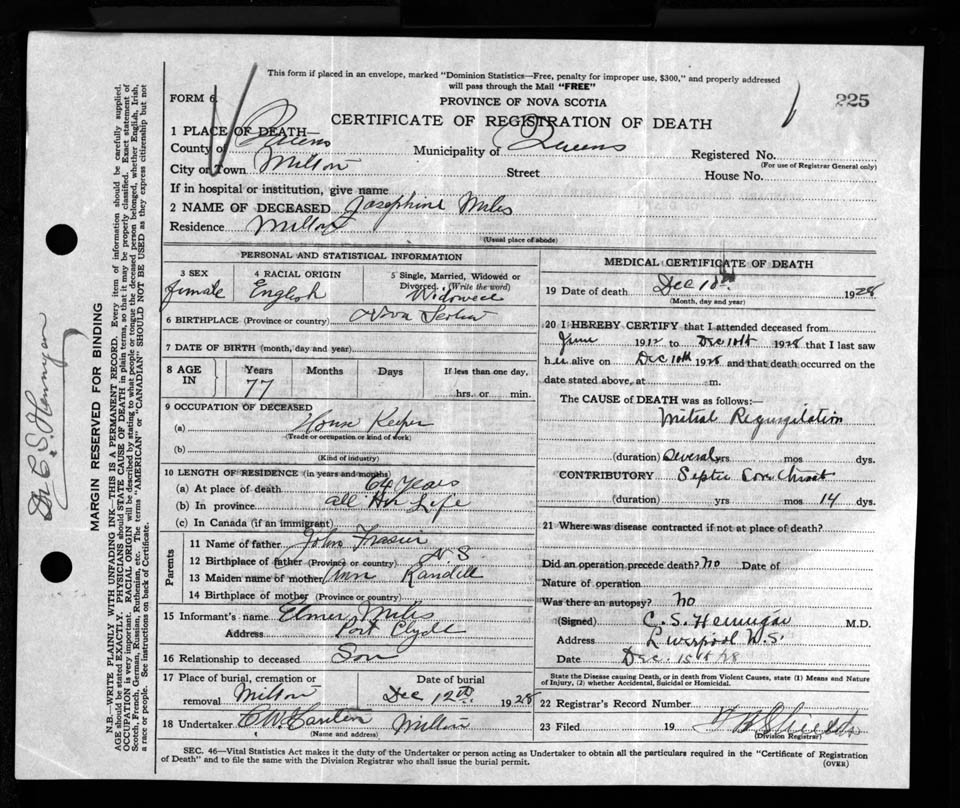 This form if placed in an envelope, marked "Dominion Statistics—Free, penalty for improper use, $300," and properly addressed
will pass through the Mail "FREE"
FORM 6.
PROVINCE OF NOVA SCOTIA
225
CERTIFICATE OF REGISTRATION OF DEATH
1 PLACE OF DEATH—
County of Queens Municipality of Queens Registered No.
(For use of Registrar General only)
City or Town Milton Street House No.
If in hospital or institution, give name
2 NAME OF DECEASED Josephine Miles
Residence Milton
(Usual place of abode)
PERSONAL AND STATISTICAL INFORMATION
3 SEX 4 RACIAL ORIGIN 5 Single, Married, Widowed or
Divorced. (Write the word)
female English Widowed
6 BIRTHPLACE (Province or country) Nova Scotia
7 DATE OF BIRTH (month, day and year)
8 AGE IN Years Months Days If less than one day,
77 hrs. or min.
9 OCCUPATION OF DECEASED
(a) House Keeper
(Trade or occupation or kind of work)
(b)
(Kind of industry)
10 LENGTH OF RESIDENCE (in years and months)
(a) At place of death 64 Years
(b) In province all Her Life
(c) In Canada (if an immigrant)
Parents
11 Name of father John Frasier
12 Birthplace of father (Province or country) N.S.
13 Maiden name of mother Ann Randell
14 Birthplace of mother (Province or country)
15 Informant's name Elmer Miles
Address Port Clyde
16 Relationship to deceased Son
17 Place of burial, cremation or Date of burial
removal Milton Dec 12th 1928
18 Undertaker Milton
(Name and address)
MEDICAL CERTIFICATE OF DEATH
19 Date of death Dec 10th 1928
(Month, day and year)
20 I HEREBY CERTIFY that I attended deceased from
June 1912 to Dec 10th 1928 that I last saw
her alive on Dec 10th 1928 and that death occurred on the
date stated above, at m.
The CAUSE of DEATH was as follows:—
Mitral Regurgitation
(duration) Several yrs mos dys.
CONTRIBUTORY Septic Sore Throat
(duration) yrs mos 14 dys.
21 Where was disease contracted if not at place of death?
Did an operation precede death? No Date of
Nature of operation
Was there an autopsy? No
(Signed) C. S. Hennigar M.D.
Address Liverpool N.S.
Date Dec. 15th/28
State the Disease causing Death, or in death from Violent Causes, state (1) Means and Nature
of Injury, (2) whether Accidental, Suicidal or Homicidal.
22 Registrar's Record Number
23 Filed 19
(Division Registrar)
SEC. 46—Vital Statistics Act makes it the duty of the Undertaker or person acting as Undertaker to obtain all the particulars required in the "Certificate of Registration
of Death" and to file the same with the Division Registrar who shall issue the burial permit.
(OVER)
Dr C. S. Hennigar
MARGIN RESERVED FOR BINDING
N.B.—WRITE PLAINLY WITH UNFADING INK—THIS IS A PERMANENT RECORD. Every item of information should be carefully supplied.
AGE should be stated EXACTLY. PHYSICIANS should STATE CAUSE OF DEATH in plain terms, so that it may be properly classified. Exact statement of
OCCUPATION is very important. RACIAL ORIGIN will be described by stating to what people or tongue the deceased person belonged, whether English, Irish,
Scotch, French, German, Russian, Ruthenian, etc. The terms "AMERICAN" or "CANADIAN" SHOULD NOT BE USED as they express citizenship but not
a race or people. See instructions on back of Certificate.